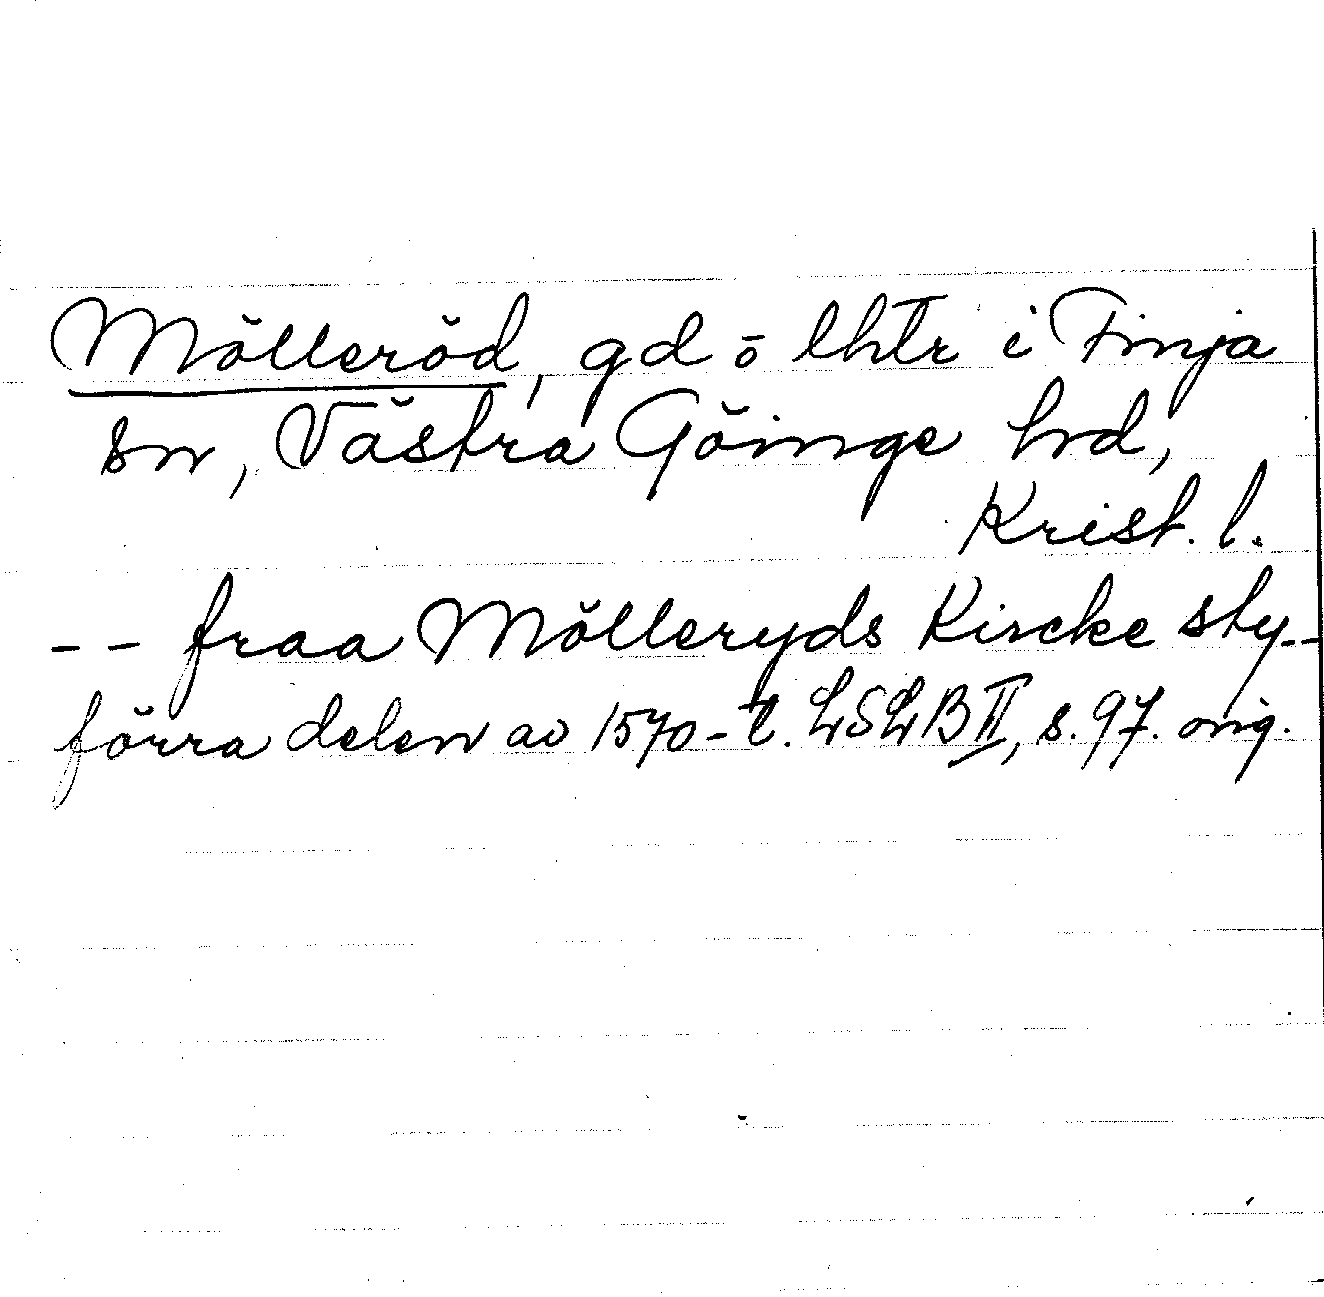 Mölleröd, gd o lhtr i Finja
sn, Västra Göinge hd,
Krist. l.
-- fraa Mölleryds Kircke sty--
förra delen av 1570-t. LSLB II, s. 97. orig.